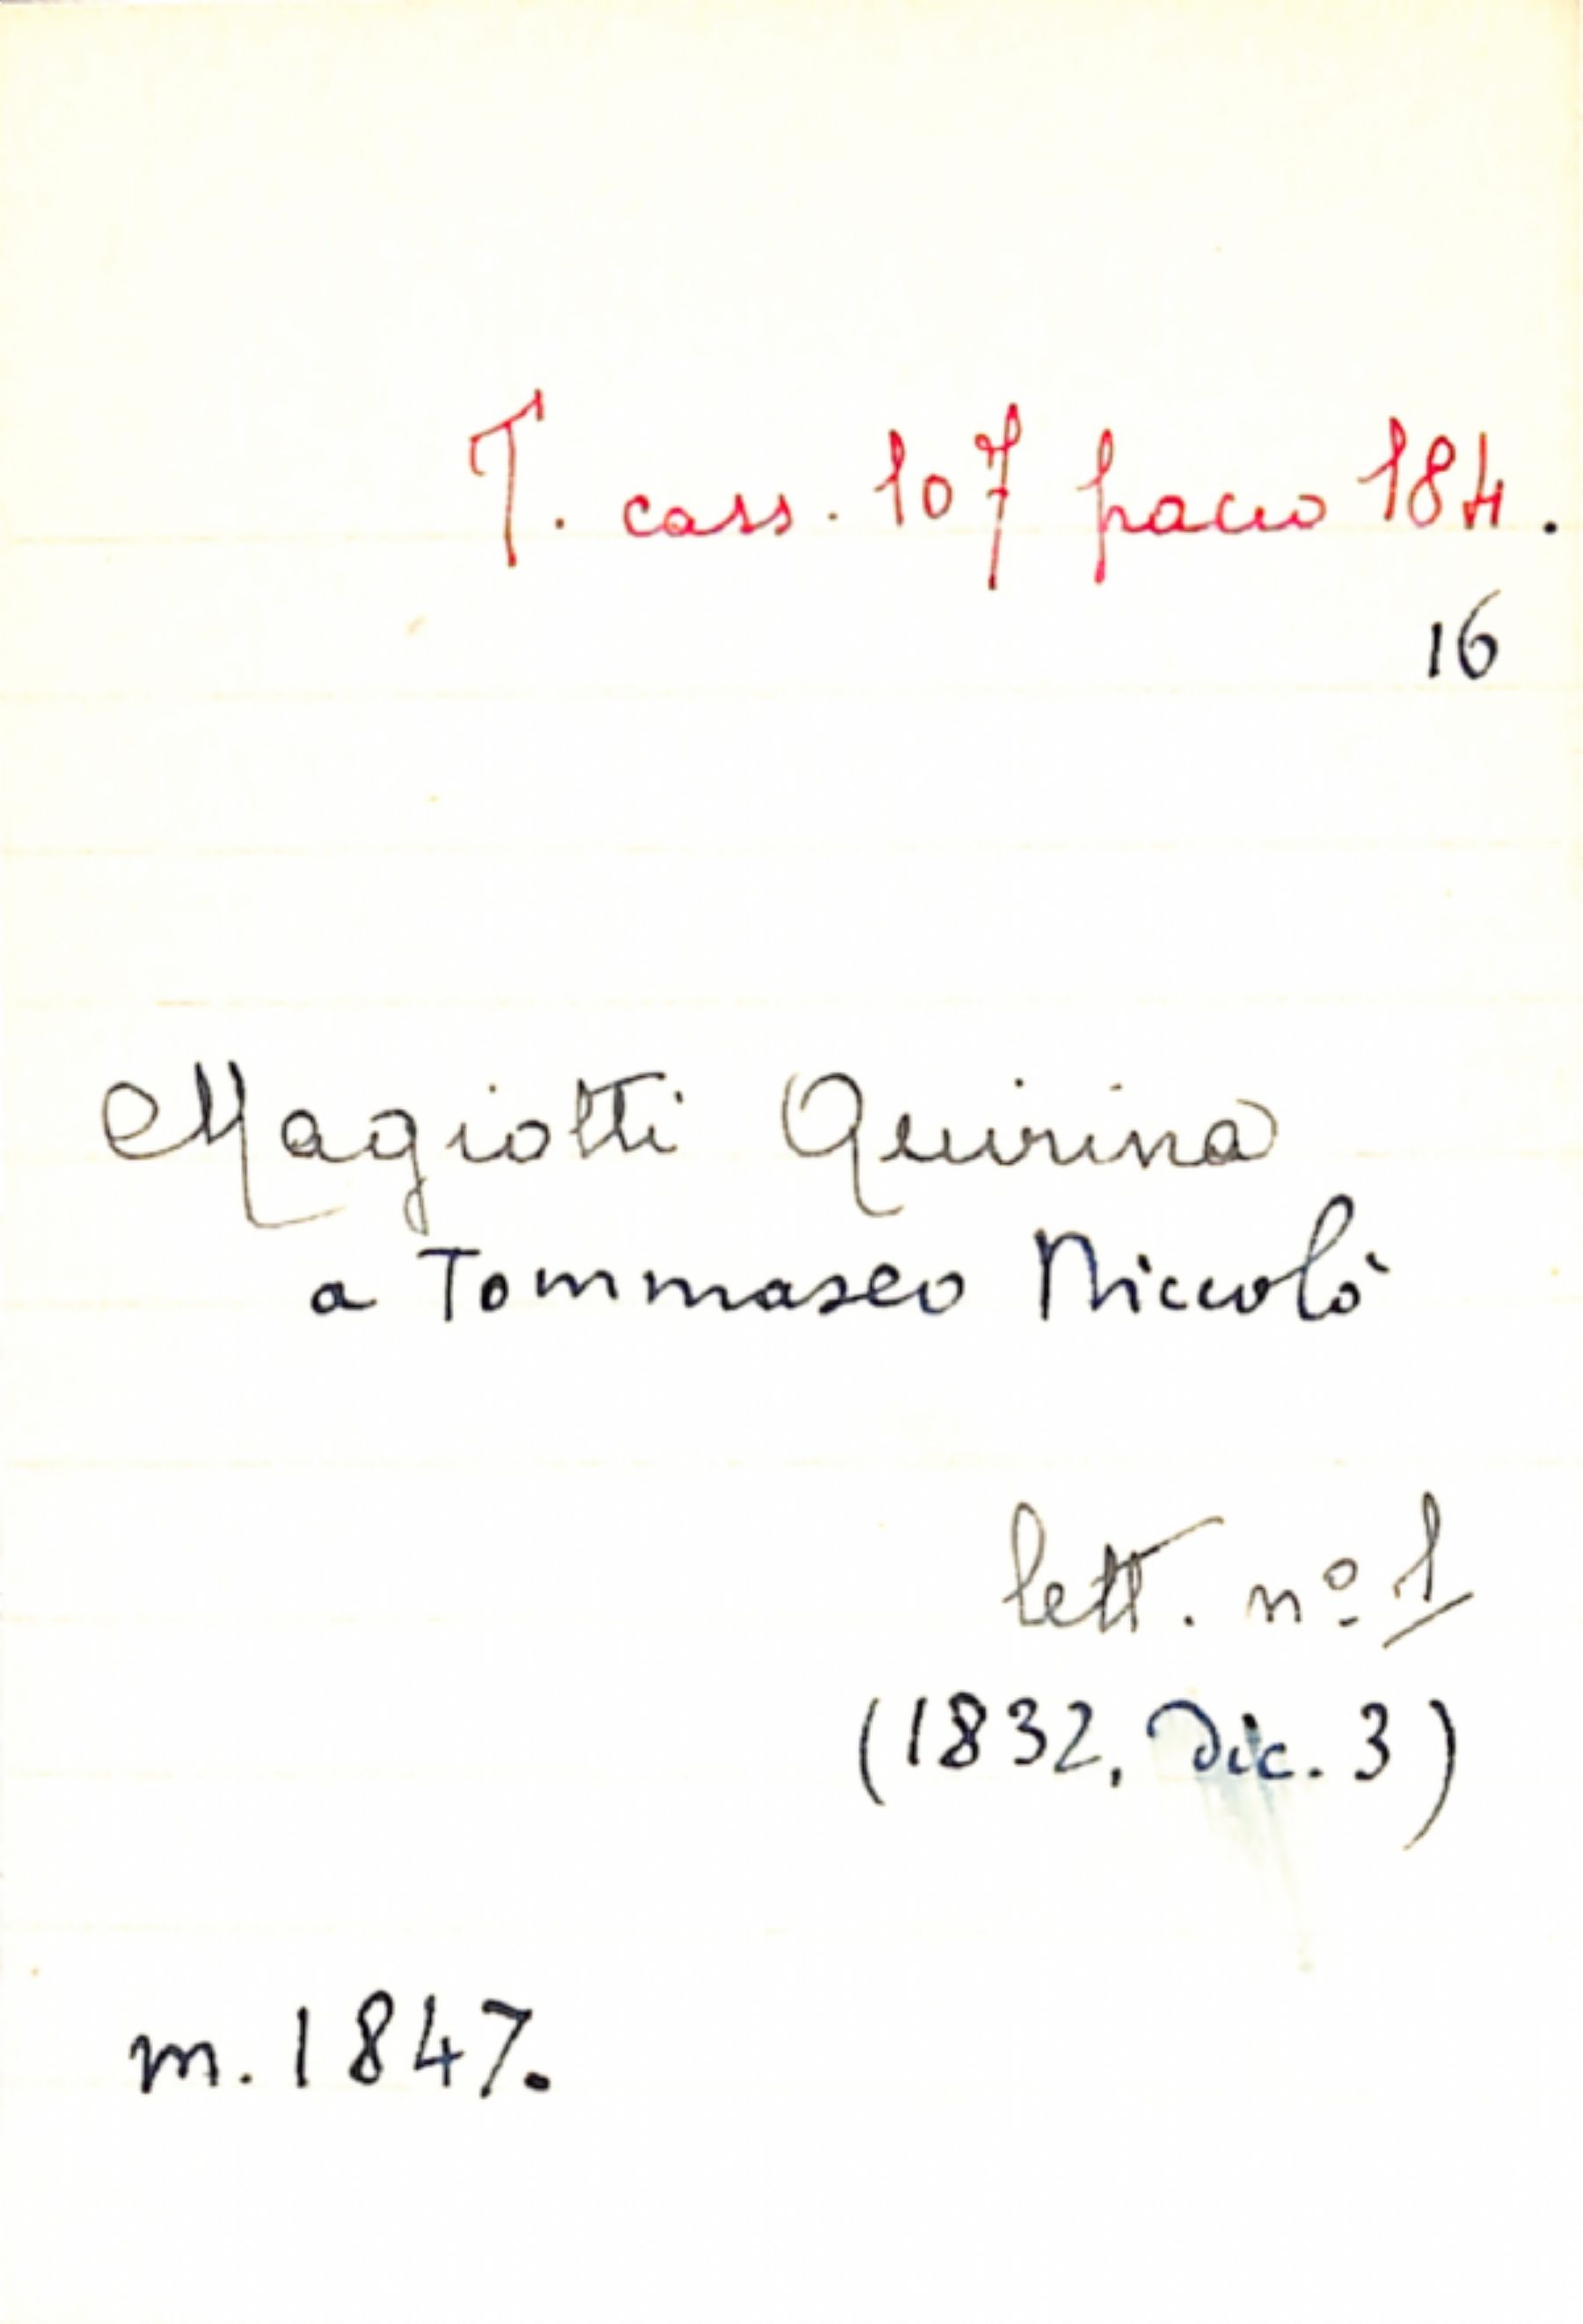 T. cass. 107 pacco 184.
16
Magiotti Quirina
a Tommaseo Niccolò
lett. nº 1
(1832, Dic. 3)
m. 1847.